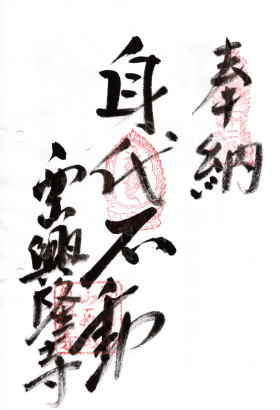 奉納
身代不動
雲興隆寺